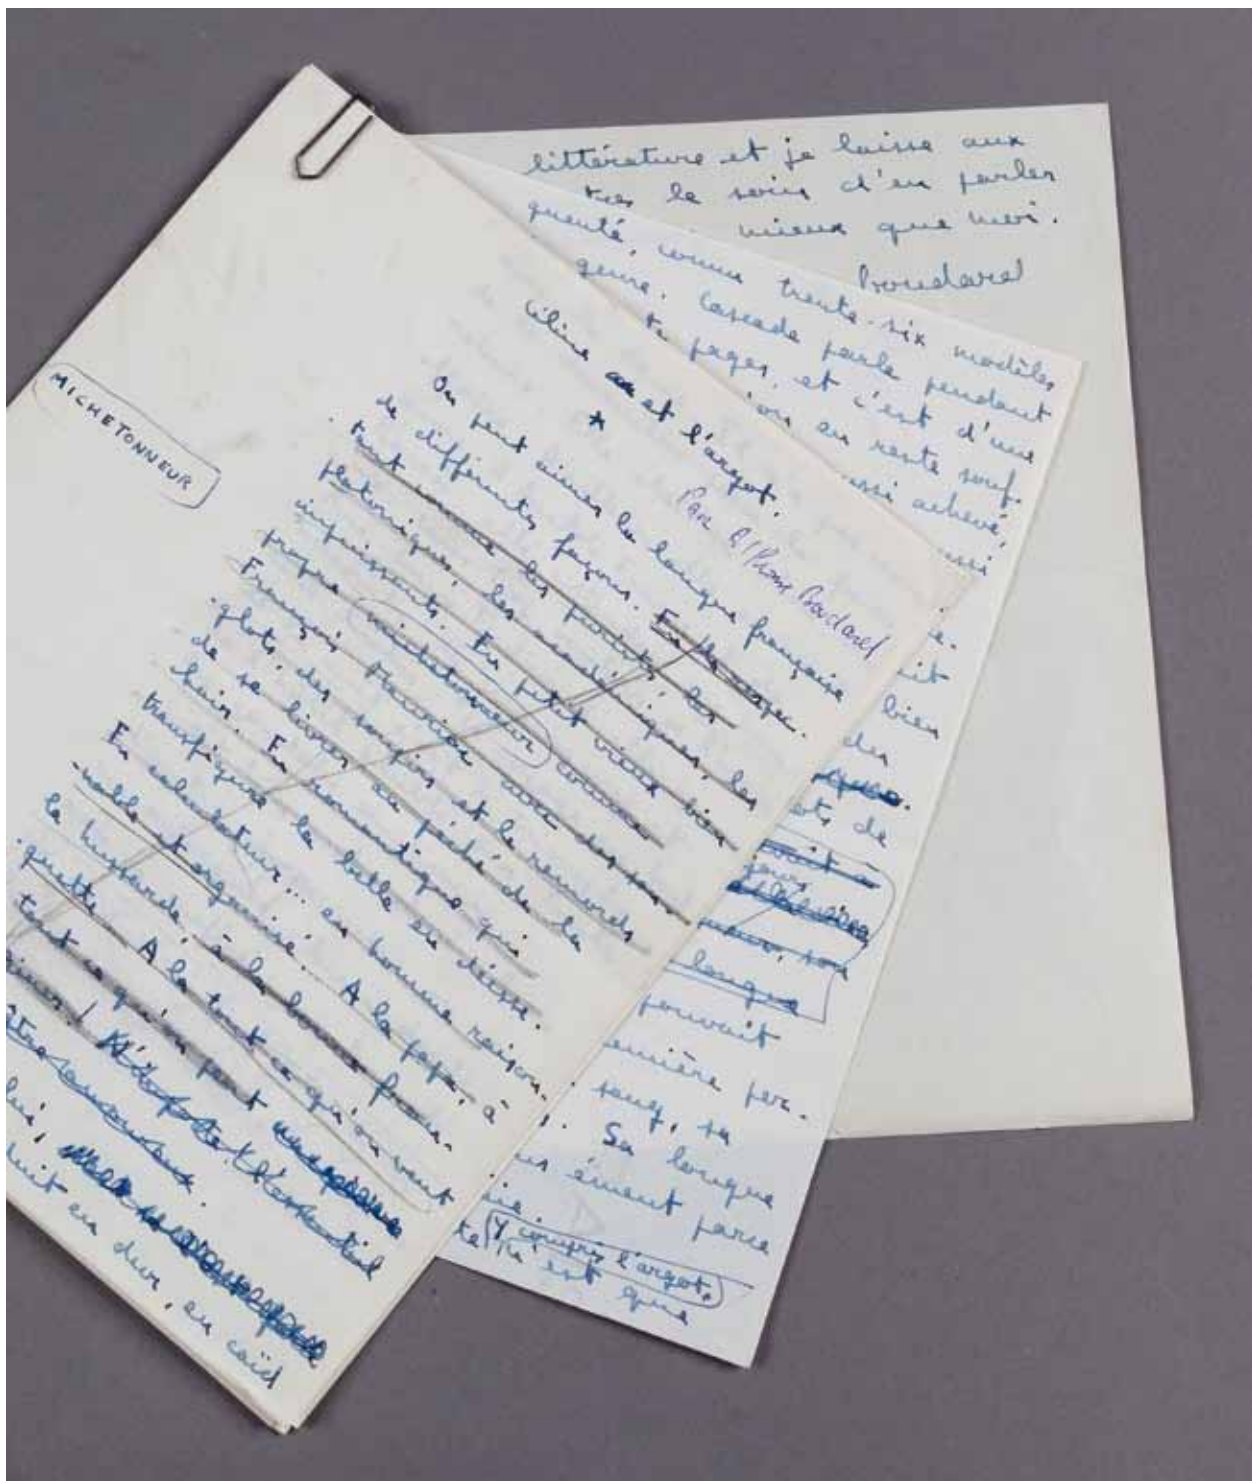 littérature et je laisse aux
tres le soin d'en parler
mieux que moi.
Boudard
quenté, comme trente-six modèles
genre. Cascade parle pendant
te pages, et c'est d'une
ion en reste souf-
ussi achevé,
ussi
e.
it
bien
des
ots de
jours
son
langue
pouvait
emière per-
sang, sa
Sa langue
us émeut parce
Y compris l'argot.
n'est que
MICHETONNEUR
Céline et l'argot.
*
Par Alphonse Boudard
On peut aimer la langue française
de différentes façons. En
tout comme les puristes, les
platoniques, les académiques, les
impuissants. En petit vieux bien
propre michetonneur comme
François Mauriac avec des san-
glots, des soupirs et le remords
de se livrer au péché de la
chair. En romantique qui
transfigure la belle en déesse.
En calculateur... en homme raison-
nable et organisé... A la papa, à
la hussarde, à la bonne fran-
quette. A la tout ce qu'on veut
tout ce qu'on peut
aimer! l'essentiel
lui,
duit en dur, en caïd